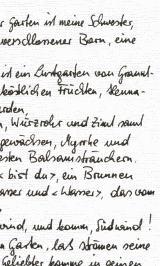 r Garten ist meine Schwester,
verschlossener Born, eine
ist ein Lustgarten von Granat-
köstlichen Früchten, Henna-
arden,
n, Würzrohr und Zimt samt
gewächsen, Myrrhe und
esten Balsamsträuchern.
bist du>, ein Brunnen
asser und <Wasser>, das vom
wind, und komm, Südwind!
n Garten, lass strömen seine
Geliebter komme in seinen